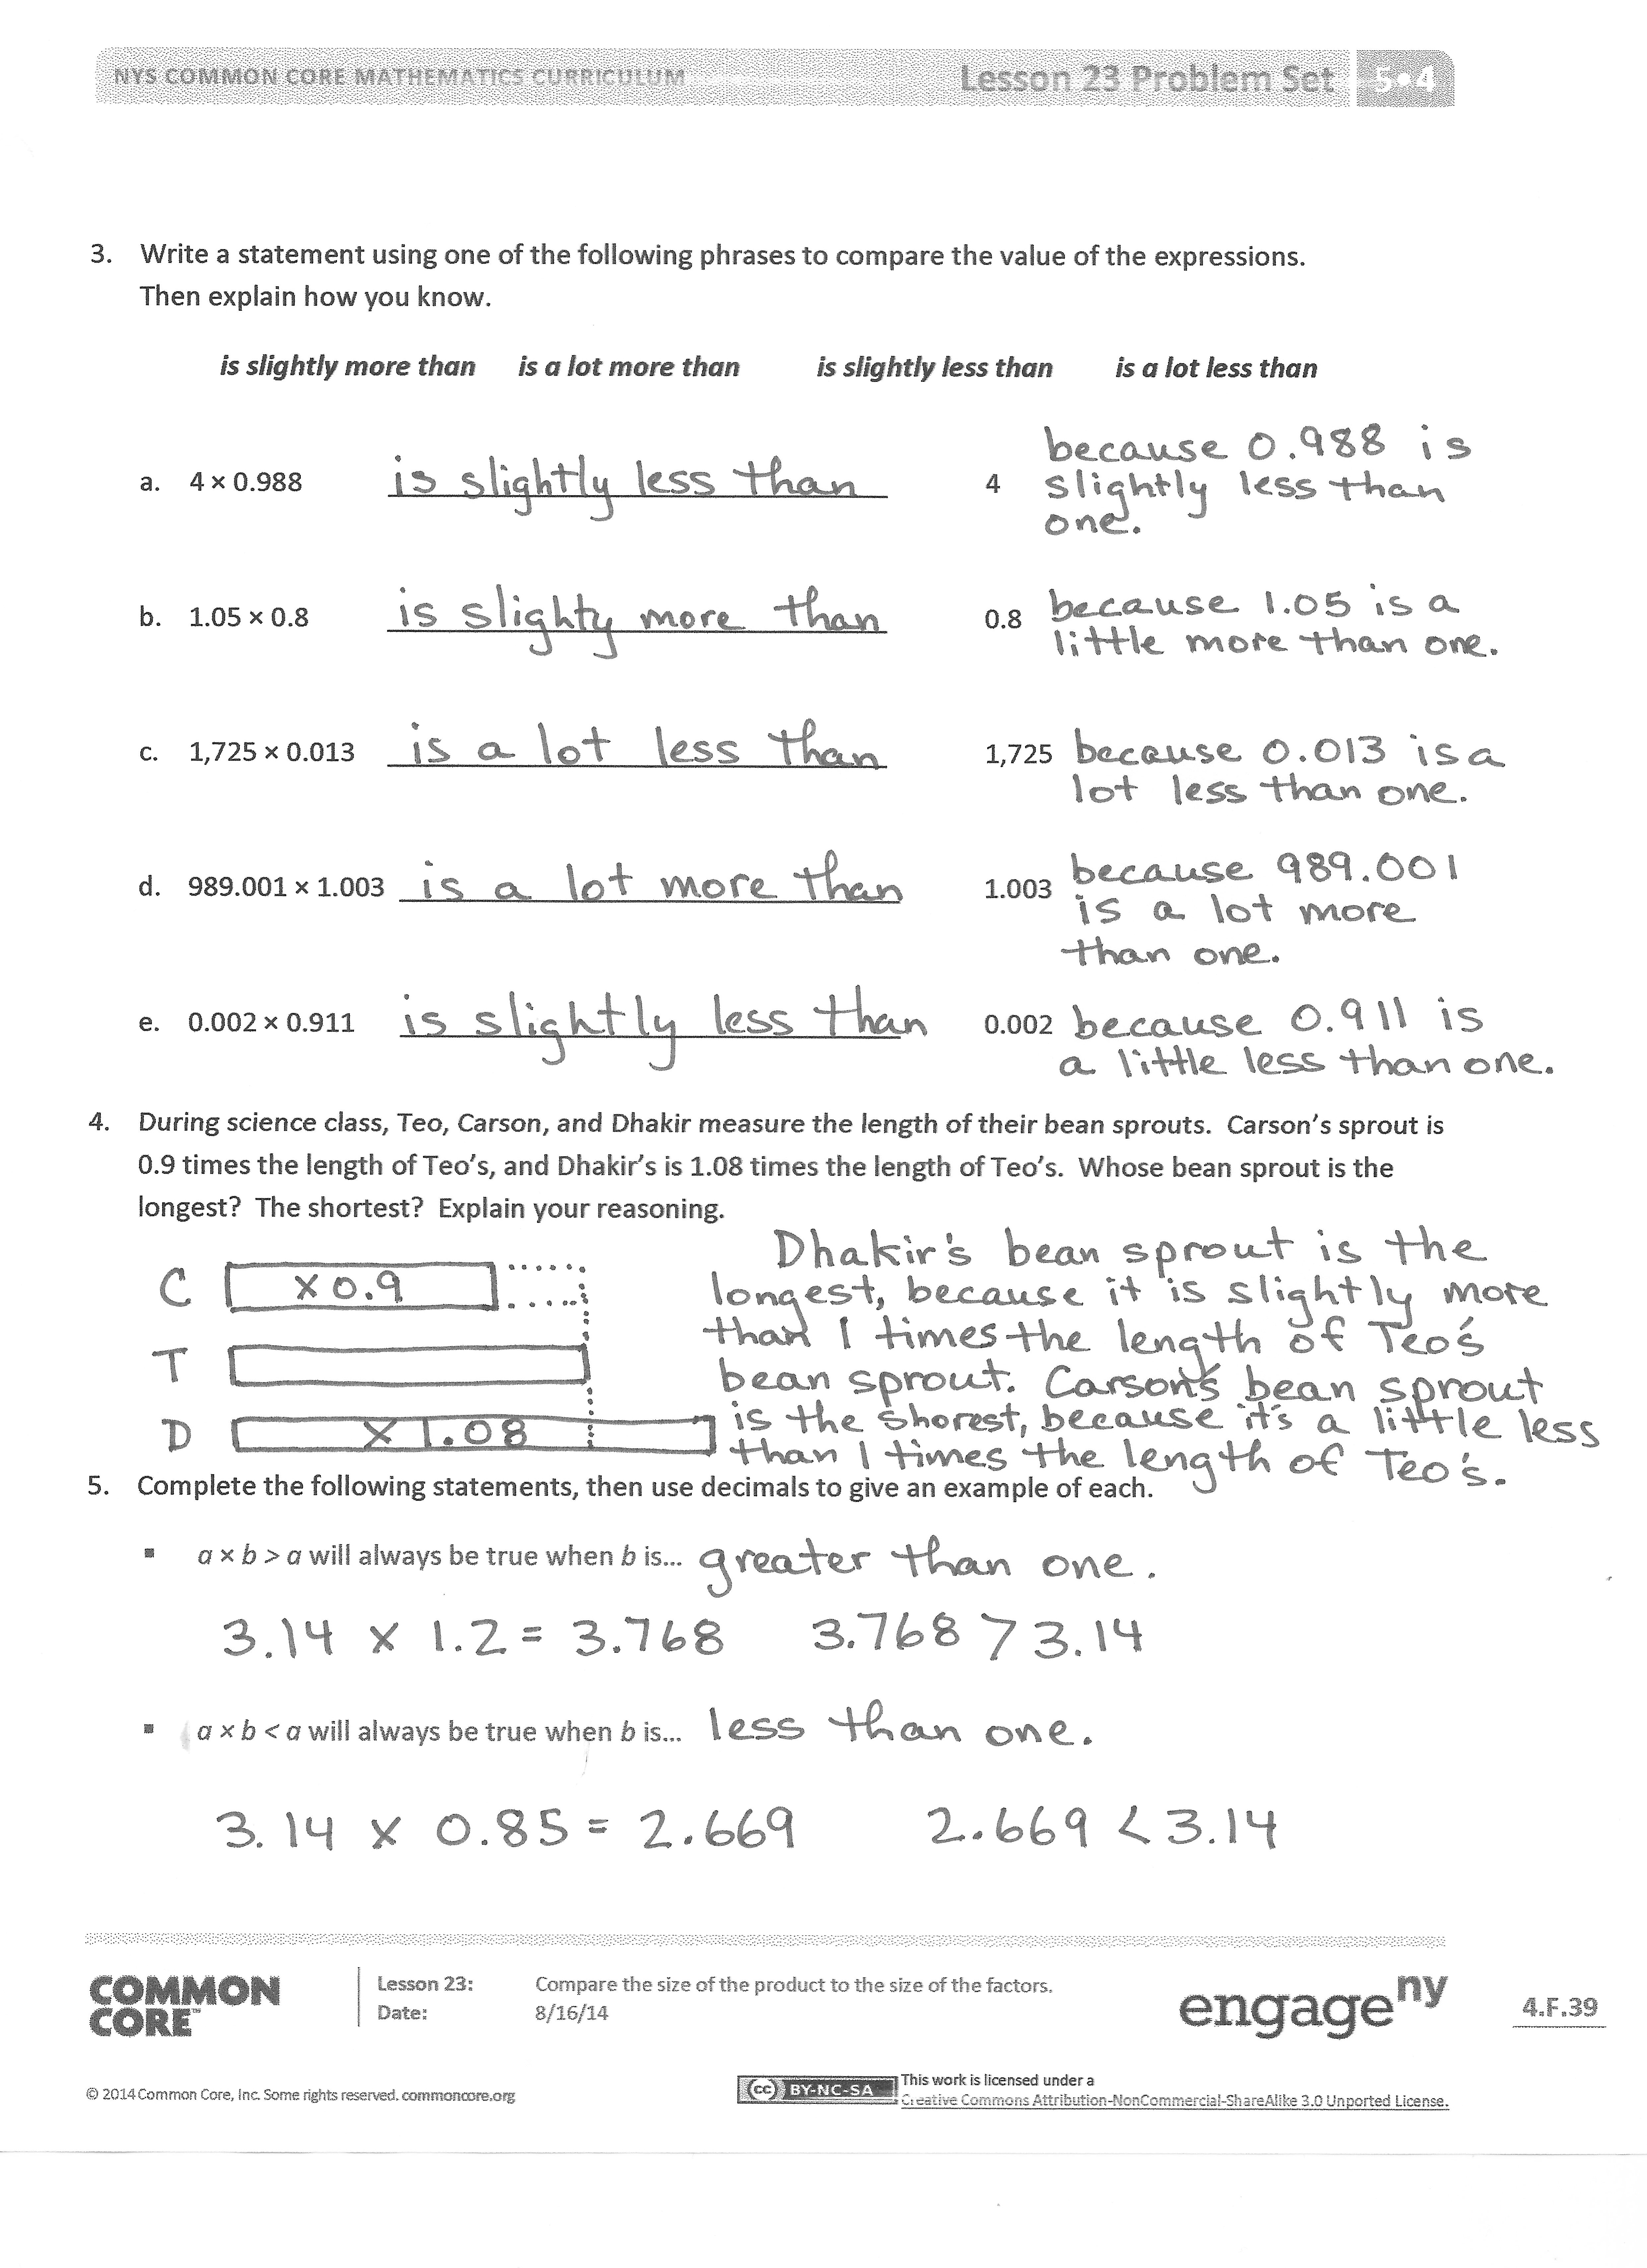 NYS COMMON CORE MATHEMATICS CURRICULUM Lesson 23 Problem Set 5•4
3. Write a statement using one of the following phrases to compare the value of the expressions.
Then explain how you know.
is slightly more than is a lot more than is slightly less than is a lot less than
a. 4 × 0.988 is slightly less than 4 because 0.988 is
slightly less than
one.
b. 1.05 × 0.8 is slighty more than 0.8 because 1.05 is a
little more than one.
c. 1,725 × 0.013 is a lot less than 1,725 because 0.013 is a
lot less than one.
d. 989.001 × 1.003 is a lot more than 1.003 because 989.001
is a lot more
than one.
e. 0.002 × 0.911 is slightly less than 0.002 because 0.911 is
a little less than one.
4. During science class, Teo, Carson, and Dhakir measure the length of their bean sprouts. Carson's sprout is
0.9 times the length of Teo's, and Dhakir's is 1.08 times the length of Teo's. Whose bean sprout is the
longest? The shortest? Explain your reasoning.
C × 0.9
T
D × 1.08
Dhakir's bean sprout is the
longest, because it is slightly more
than 1 times the length of Teo's
bean sprout. Carson's bean sprout
is the shorest, because it's a little less
than 1 times the length of Teo's.
5. Complete the following statements, then use decimals to give an example of each.
▪ a × b > a will always be true when b is... greater than one.
3.14 × 1.2 = 3.768 3.768 > 3.14
▪ a × b < a will always be true when b is... less than one.
3.14 × 0.85 = 2.669 2.669 < 3.14
COMMON
CORE™
Lesson 23: Compare the size of the product to the size of the factors.
Date: 8/16/14
engageny
4.F.39
© 2014 Common Core, Inc. Some rights reserved. commoncore.org
cc BY-NC-SA
This work is licensed under a
Creative Commons Attribution-NonCommercial-ShareAlike 3.0 Unported License.